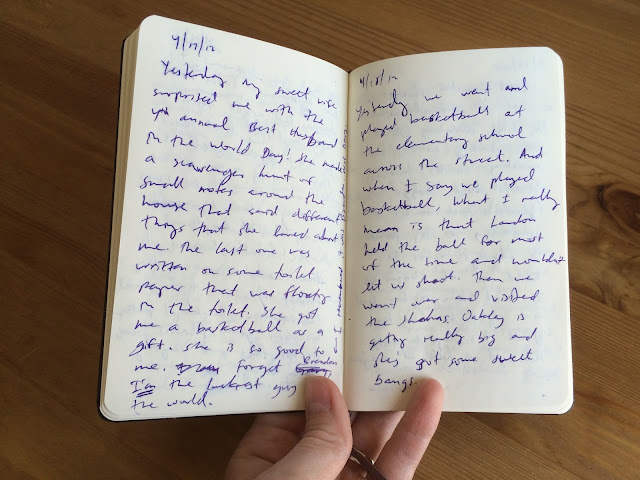 4/17/12
Yesterday my sweet wife
surprised me with the
4th annual Best Husband
in the world Day! She made
a scavenger hunt of
small notes around the
house that said different
things that she loved about
me. The last one was
written on some toilet
paper that was floating
in the toilet. She got
me a basketball as a
gift. She is so good to
me. forget
I'm the luckiest guy
the world.
4/18/12
Yesterday we went and
played basketball at
the elementary school
across the street. And
when I say we played
basketball, what I really
mean is that Landon
held the ball for most
of the time and wouldn't
let us shoot. Then we
went over and visited
the Oakley is
getting really big and
she's got some sweet
bangs.